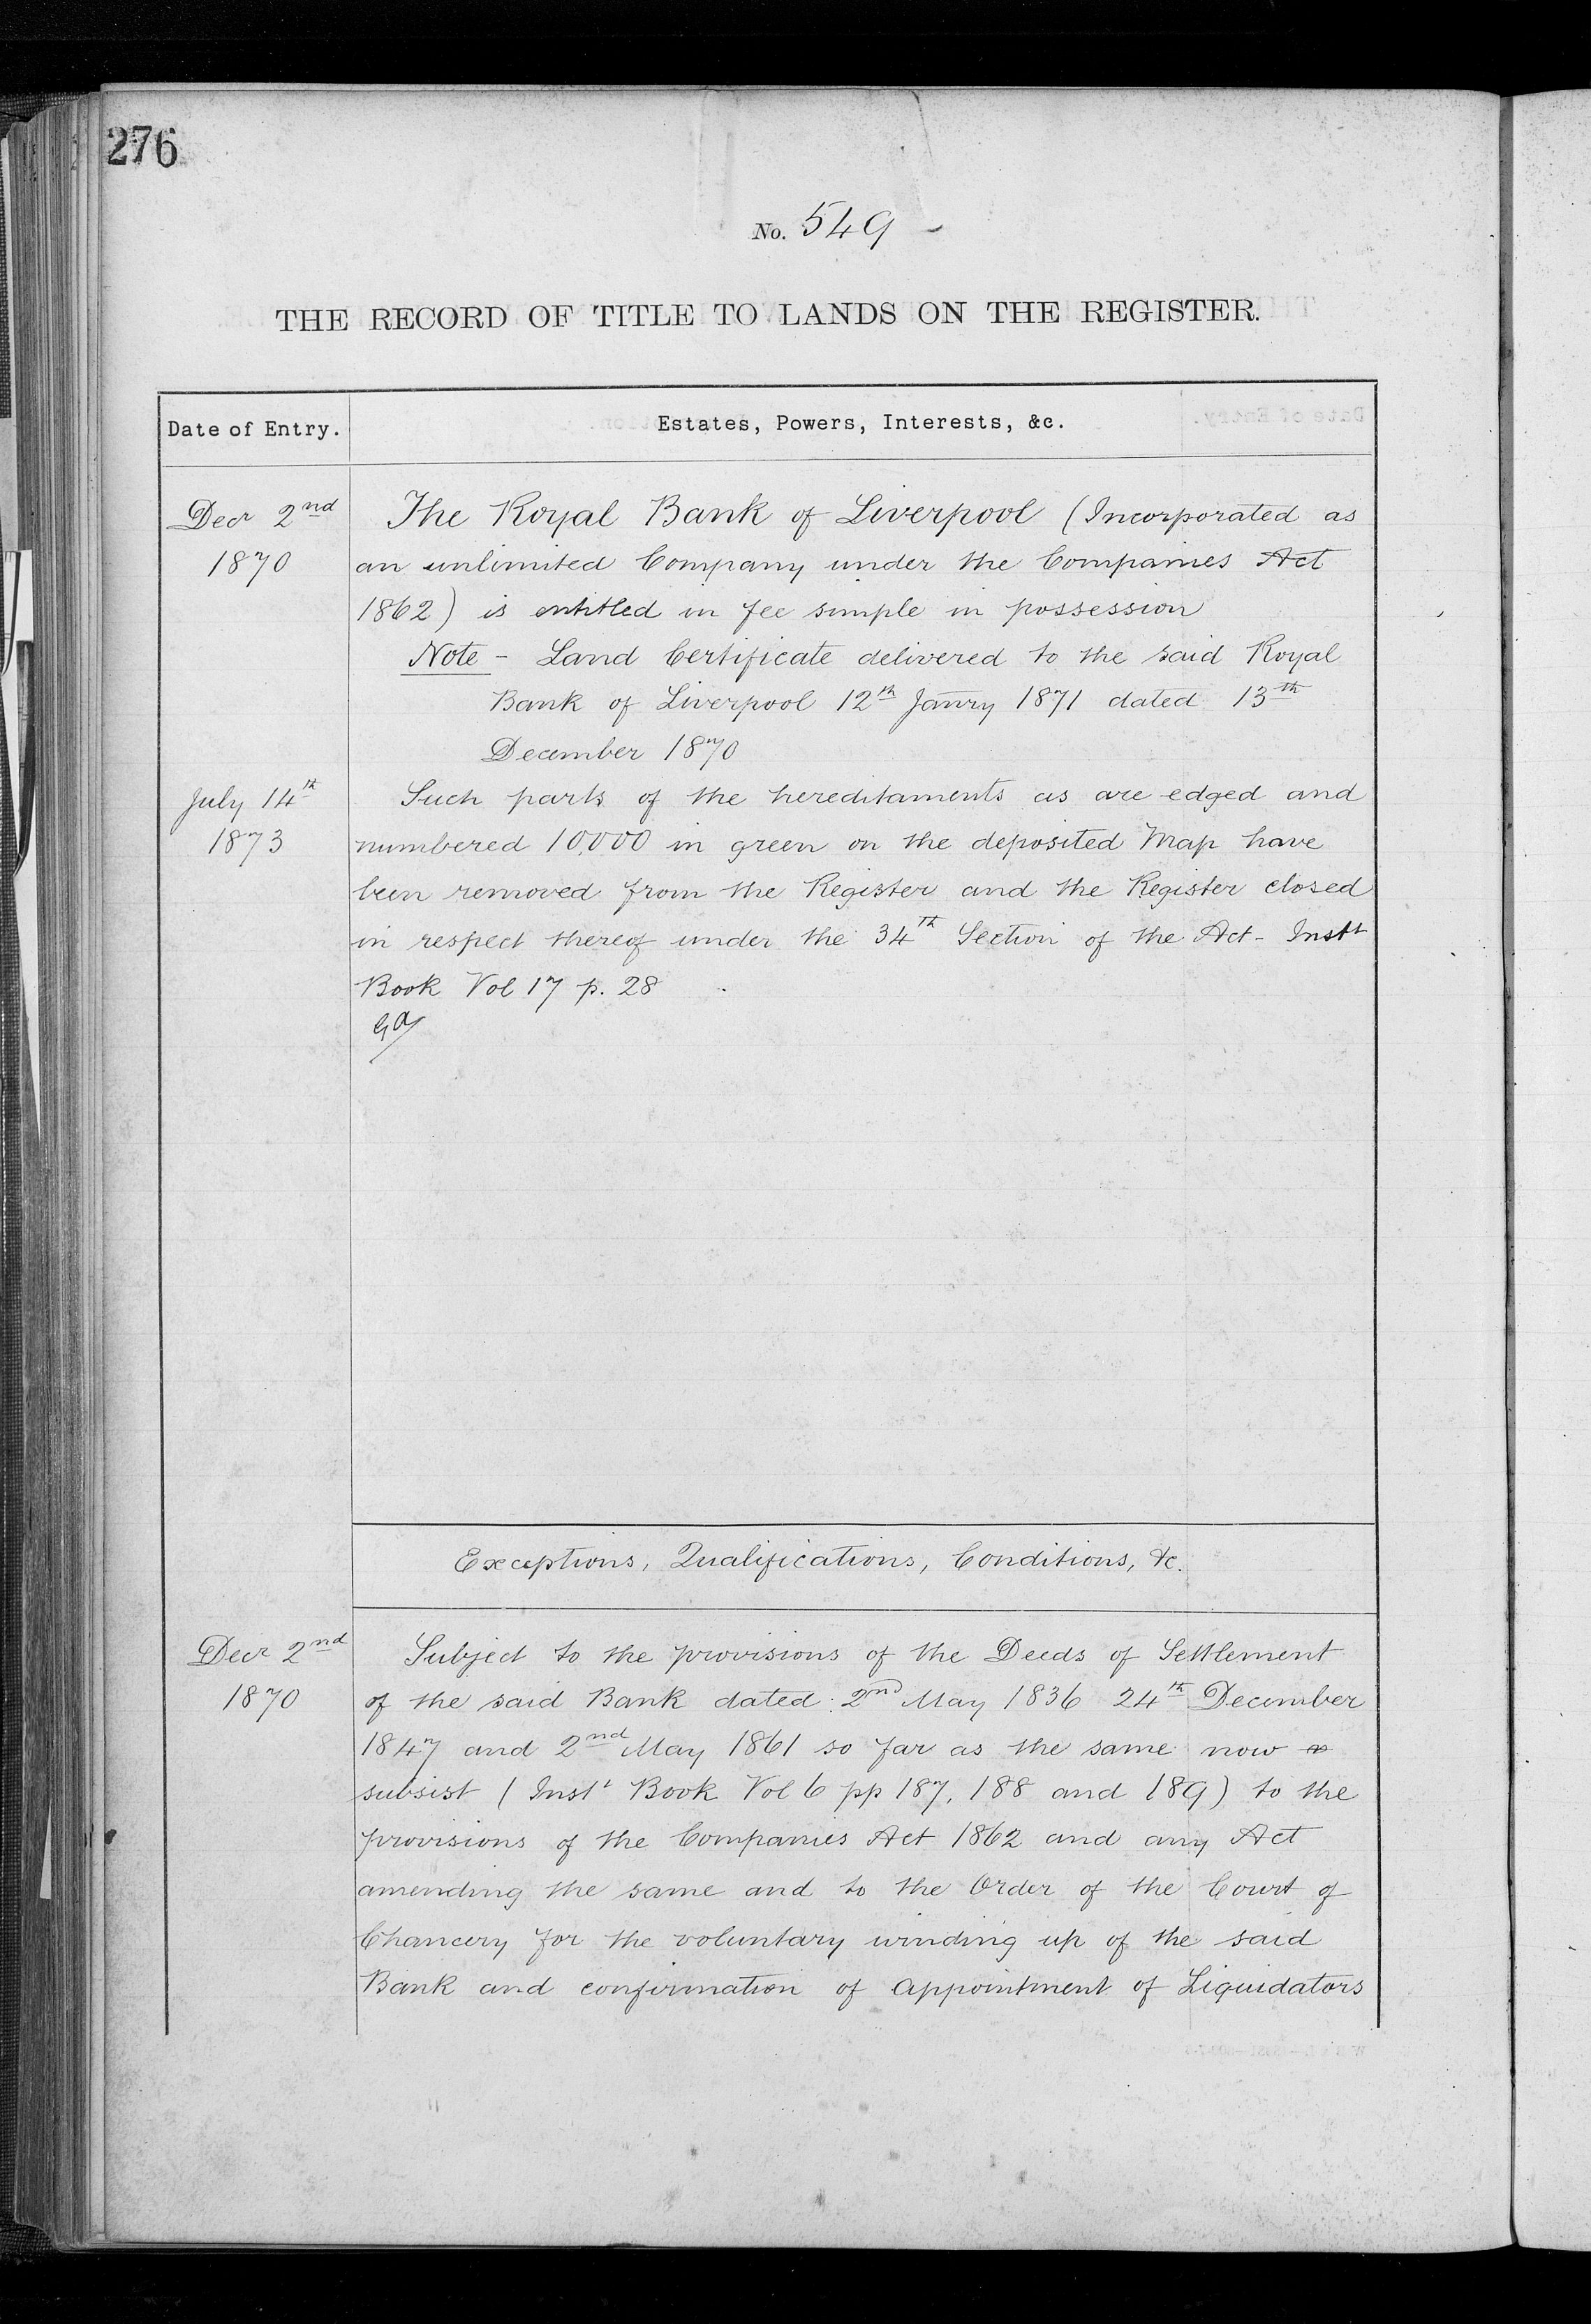 276
No. 549 -
THE RECORD OF TITLE TO LANDS ON THE REGISTER.
Date of Entry. Estates, Powers, Interests, &c.
Decr 2nd The Royal Bank of Liverpool (Incorporated as
1870 an unlimited Company under the Companies Act
1862) is entitled in fee simple in possession
Note - Land Certificate delivered to the said Royal
Bank of Liverpool 12th Janry 1871 dated 13th
December 1870
July 14th Such parts of the hereditaments as are edged and
1873 numbered 10,000 in green on the deposited Map have
been removed from the Register and the Register closed
in respect thereof under the 34th Section of the Act - Instt
Book Vol 17 p. 28
Exceptions, Qualifications, Conditions, &c.
Decr 2nd Subject to the provisions of the Deeds of Settlement
1870 of the said Bank dated 2nd May 1836 24th December
1847 and 2nd May 1861 so far as the same now
subsist (Instt Book Vol 6 pp 187, 188 and 189) to the
provisions of the Companies Act 1862 and any Act
amending the same and to the Order of the Court of
Chancery for the voluntary winding up of the said
Bank and confirmation of appointment of Liquidators